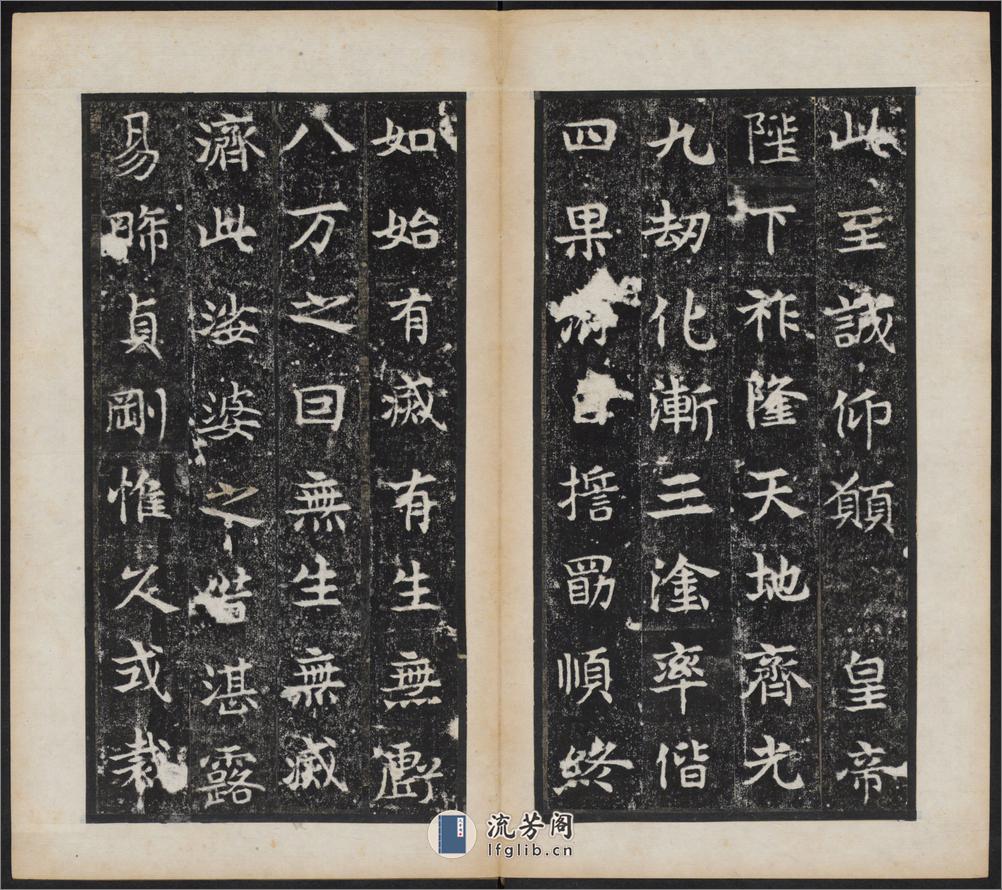 此至誠仰願 皇帝
陛下祚隆天地齊光
九劫化漸三塗率偕
四果日擔勗順終
如始有滅有生無虧
八万之回無生無滅
濟此娑婆之湛露
易晞貞剛惟久式栽
流芳阁
lfglib.cn